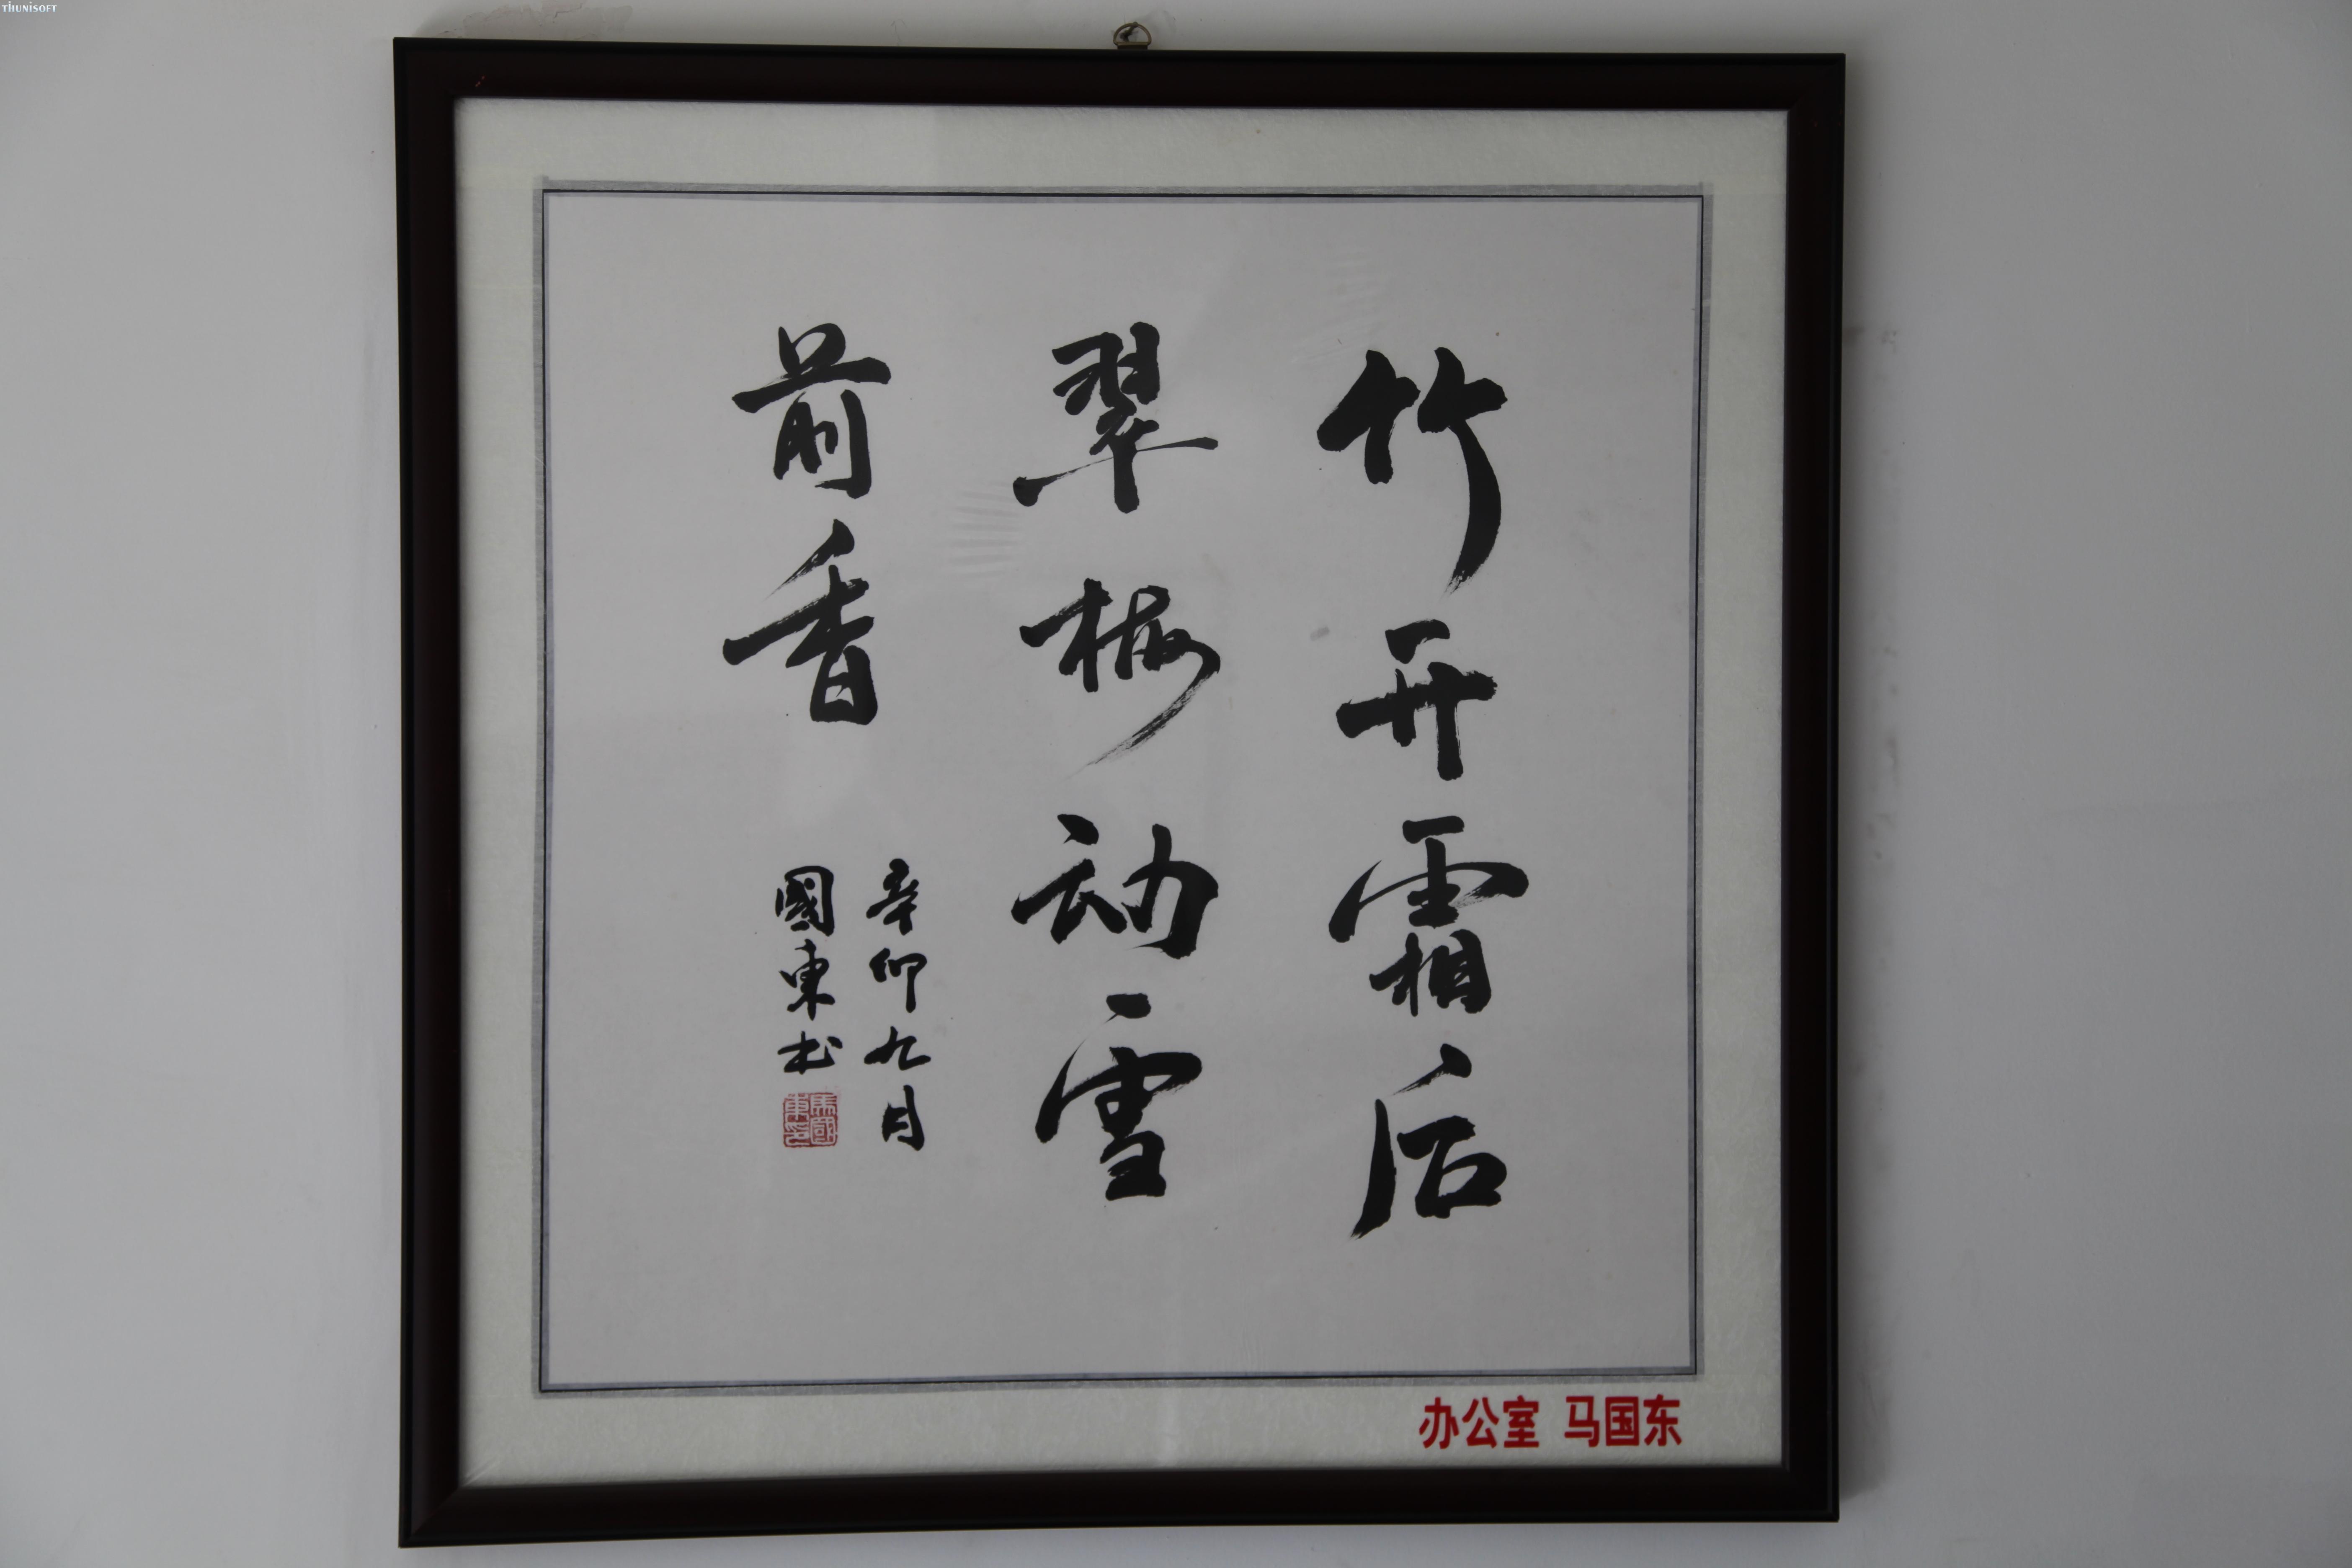 THUNISOFT
竹开霜后
翠梅动雪
前香
辛卯九月
國東书
馬國東印
办公室 马国东